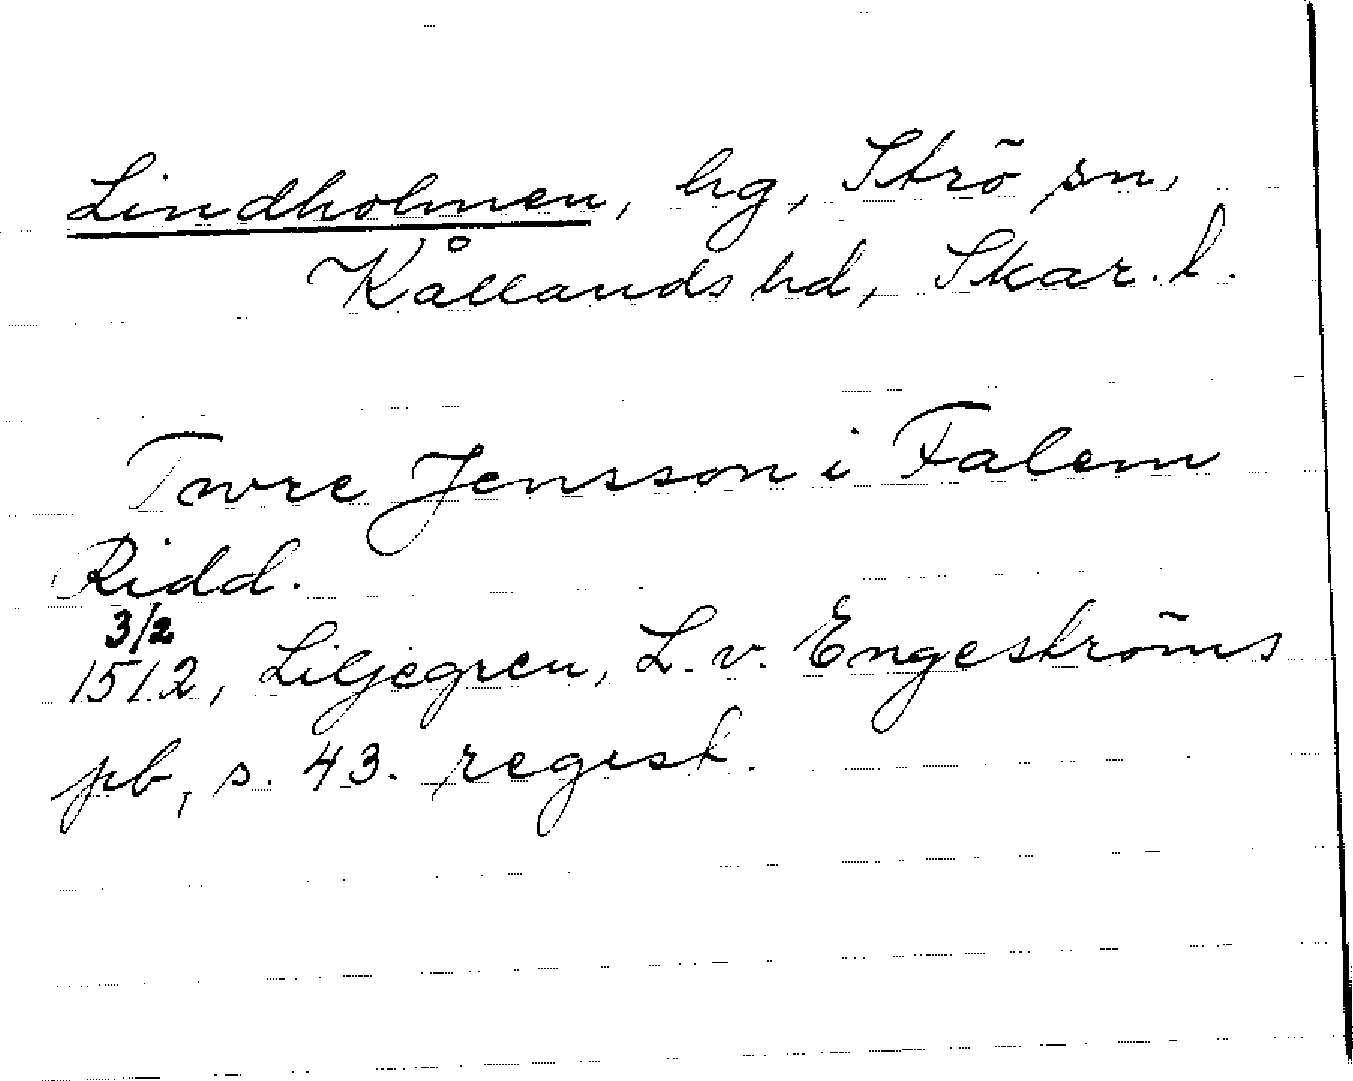 Lindholmen, hg, Strö sn,
Kållands hd, Skar. l.
Twre Jensson i Falem
Ridd.
3/2
1512, Liljegren, L. v. Engeströms
pb, s. 43. regest.